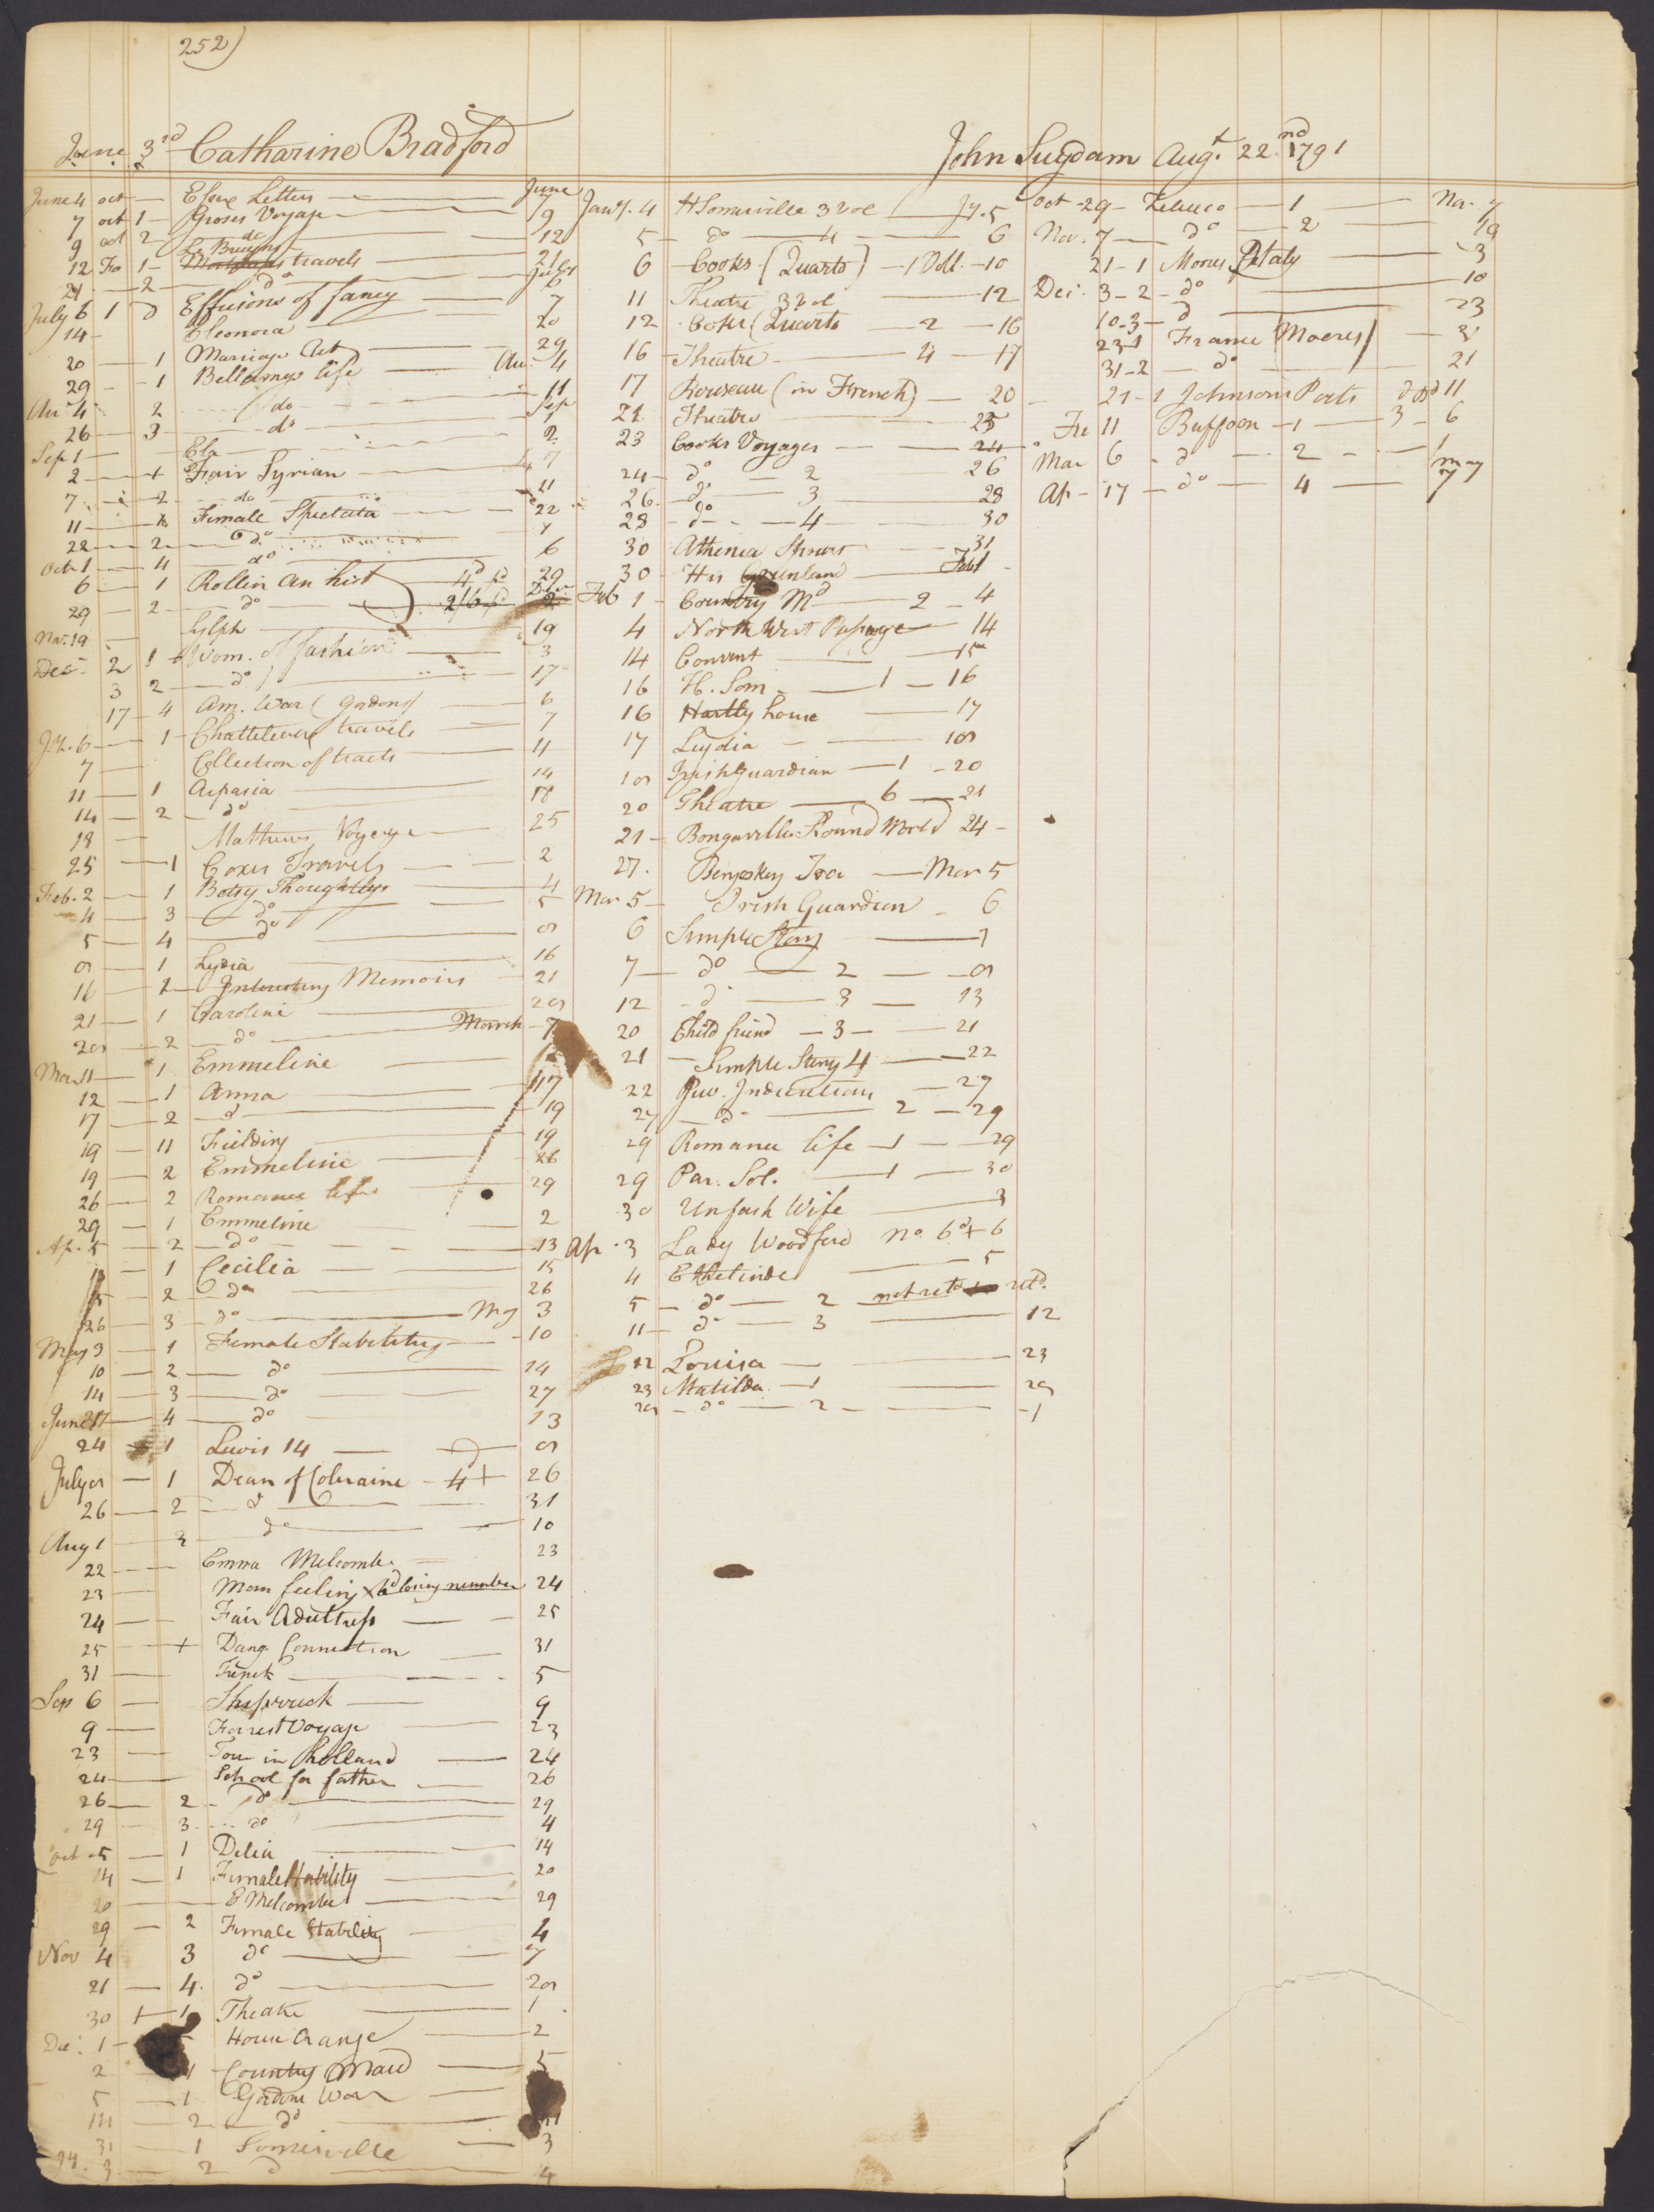 252)
June 3rd Catharine Bradford
June
June 4 oct — Letters — 7
7 oct 1 — Groses Voyage — 9
9 oct 2 — do — 12
12 Fo 1 — Le Bruyns travels — 21
21 — 2 — do — July 6
July 6 1 d Effusions of fancy — 7
14 — Eleonora — 20
20 — 1 Marriage Act — 29
29 — 1 Bellamys life — Au. 4
Au 4 2 do — 11
26 — 3 — do — Sep 1
Sep 1 — Ela — 2
2 — + Fair Syrian — 7
7 — 2 — do — 11
11 — Female Spectata — 22
22 — 2 — do
Oct 1 — 4 — do — 6
6 — 1 Rollin an hist — 4d pd 29
29 — 2 — do — 2/6 pd
Nov. 19 — Sylph — 19
Dec 2 1 + Wom. of fashion — 3
3 2 — do — 17
17 — 4 Am. War (Gordons) — 6
Jy. 6 — 1 — travels — 7
7 — Collection of tracts — 11
11 — 1 Aspasia — 14
14 — 2 — do — 18
18 — Mathews Voyage — 25
25 — 1 Coxes Travels — 2
Feb. 2 — 1 Betsy Thoughtless — 4
4 — 3 — do — 5
5 — 4 — do — 9
9 — 1 Lydia — 16
16 — 2 — Interesting Memoirs — 21
21 — 1 Caroline — 29
29 — 2 — do — March 7
Mar 11 — 1 Emmeline
12 — 1 Anna — 17
17 — 2 — do — 19
19 — 11 Fielding — 19
19 — 2 Emmeline — 26
26 — 2 Romance life — 29
29 — 1 Emmeline — 2
Ap. 5 — 2 — do — 13
13 — 1 Cecilia — 15
15 — 2 — do — 26
26 — 3 — do — May 3
May 3 — 1 Female Stability — 10
10 — 2 — do — 14
14 — 3 — do — 27
June 17 — 4 — do — 13
24 + 1 Lewis 14 — 9
July 9 — 1 Dean of Colraine — 4 + 26
26 — 2 — do — 31
Aug 1 — 3 — do — 10
22 — Emma Melcombe — 23
23 — Man feeling x 6d losing number 24
24 — Fair Adultress — 25
25 — + Dang. Connection — 31
31 — Trenck — 5
Sep 6 — Shipwreck — 9
9 — Forrest Voyage — 23
23 — Tour in Holland — 24
24 — School for father — 26
26 — 2 — do — 29
29 — 3 — do — 4
Oct 5 — 1 Delia — 14
14 — 1 Female Stability — 20
20 — E Melcombe — 29
29 — 2 Female Stability — 4
Nov 4 3 do — 7
21 — 4 do — 29
30 + 1 Theatre — 1
Dec. 1 — House Orange — 2
2 — 1 Country Maid — 5
5 — 1 Gordons War —
2 — do —
31 — 1 Somerville — 3
Jy. 3 — 2 do — 4
Jany. 4 H Somerville 3 vol — Jy. 5
5 — do — 4 — 6
6 Cooks (Quarto) — 1 Voll. — 10
11 Theatre 3 vol — 12
12 Cooks (Quarto — 2 — 16
16 Theatre — 4 — 17
17 Rouseau (in French) — 20
21 Theatre — 23
23 Cooks Voyages — 24
24 — do — 2 26
26 — do — 3 — 28
28 — do — 4 — 30
30 Athenia — 31
30 — His Greenland — Feb 1
Feb 1 — Country Md — 2 — 4
4 North West Passage — 14
14 Convent — 15
16 H. Som — 1 — 16
16 Hartly house — 17
17 Lydia — 19
19 Irish Guardian — 1 — 20
20 Theatre — 6 — 21
21 — Bongavilles Round World 24 —
27. Benyoskey — Mar 5
Mar 5 — Irish Guardian — 6
6 Simple Story — 7
7 — do — 2 — 9
12 — do — 3 — 13
20 Child friend — 3 — 21
21 — Simple Story 4 — 22
22 Juv. — 27
27 — do — 2 — 29
29 Romance life — 1 — 29
29 Par. Sol. — 1 — 30
30 Unfash Wife — 3
Ap. 3 Lady Woodford no. 6d + 6
4 Ethelinde — 5
5 — do — 2 not retd retd.
11 — do — 3 — 12
12 Louisa — 23
23 Matilda — 1 — 29
29 — do — 2 — 1
John Suydam Augt. 22nd 1791
Oct 29 — Zeluco — 1 — Nov. 7
Nov. 7 — do — 2 — 19
21 — 1 Mores Italy — 3
Dec. 3 — 2 — do — 10
10 — 3 — do — 23
23 — 1 France (Moores) — 31
31 — 2 — do — 21
21 — 1 Johnsons Poets — 11
Fe 11 Buffoon — 1 — 3 — 6
Mar 6 — do — 2 — 1
Ap — 17 — do — 4 — May 7